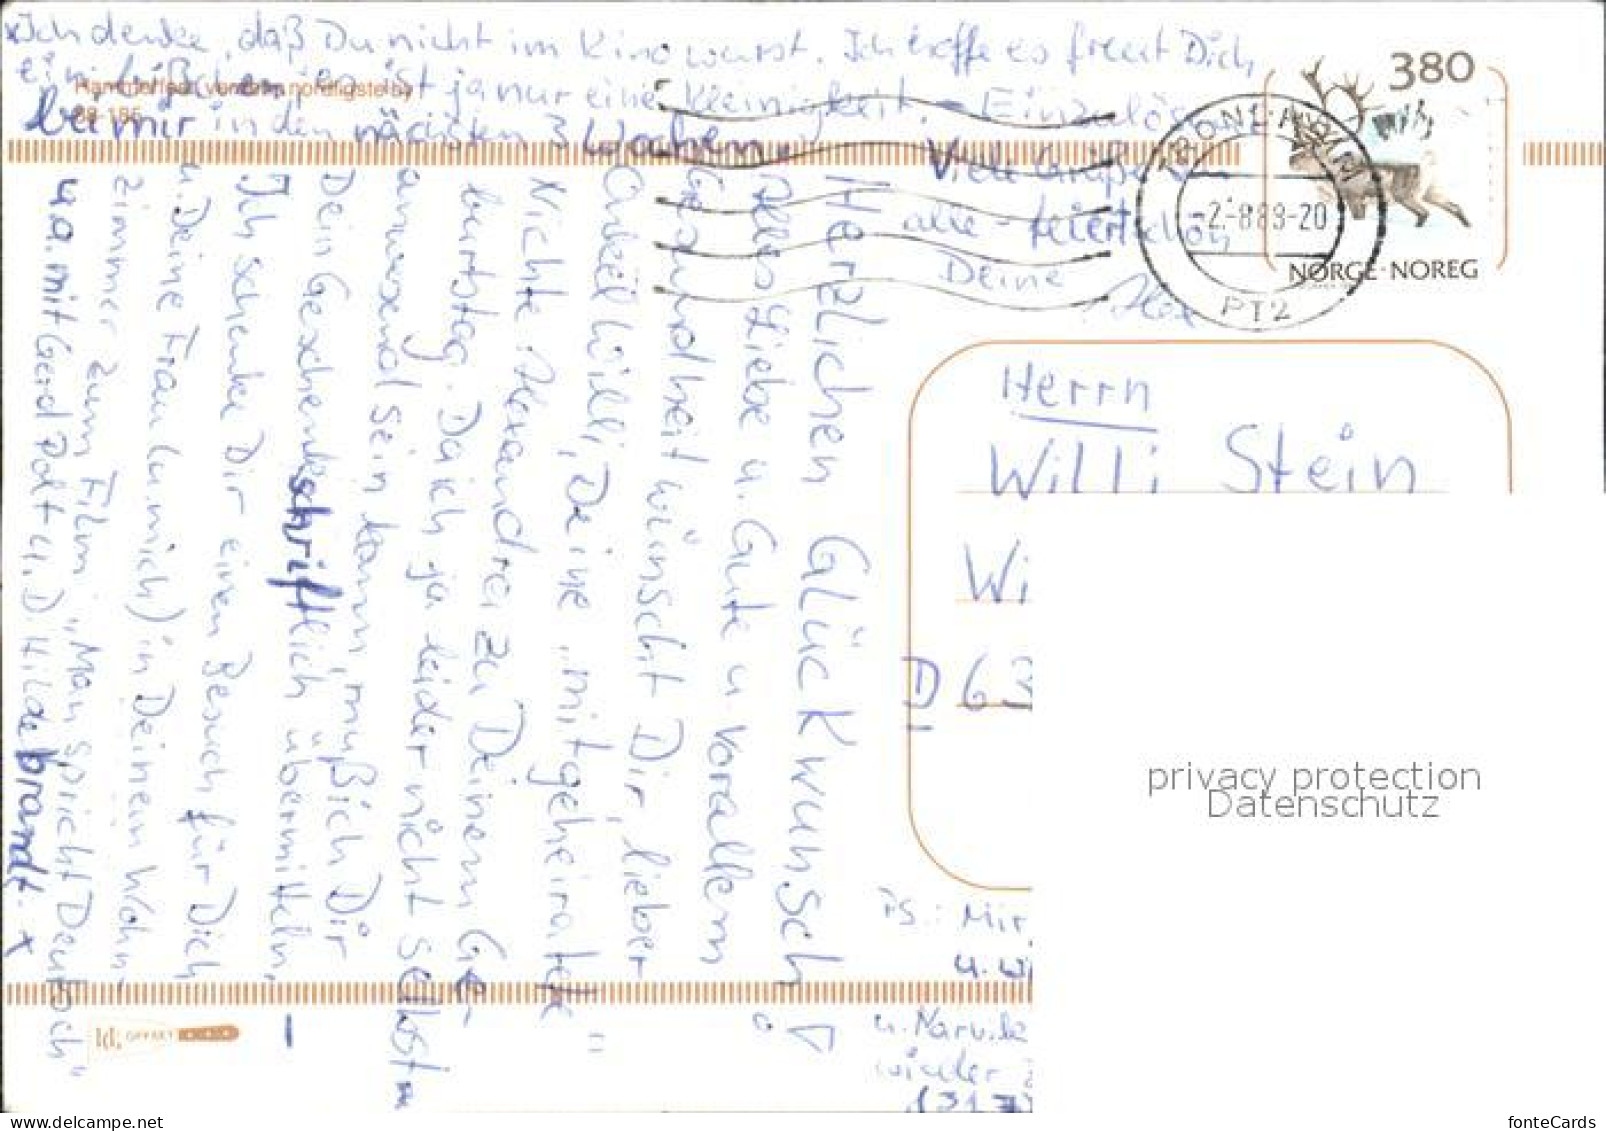 Herzlichen Glückwunsch!
Alles Liebe u. Gute u. vorallem
Gesundheit wünscht Dir, lieber
Onkel Willi, Deine „mitgeheiratete"
Nichte Alexandra zu Deinem Ge-
burtstag. Da ich ja leider nicht selbst
anwesend sein kann, muß ich Dir
Dein Geschenk schriftlich übermitteln.
Ich schenke Dir einen Besuch für Dich
u. Deine Frau (u. mich) in Deinem Wohn-
zimmer zum Film „Man spricht Deutsch"
u.a. mit Gerd Polt u. D. Hildebrandt. x
x Ich denke, daß Du nicht im Kino warst. Ich hoffe es freut Dich
ein bißchen, es ist ja nur eine Kleinigkeit. - Einzulösen
bei mir in den nächsten 3 Wochen.
Viele Grüße an
alle - feiert schön
Deine
Alex
Hammerfest, verdens nordligste by
380
NORGE·NOREG
TRONDHEIM
-2.-8.89-20
PT2
Herrn
Willi Stein
Wi
D 6
PS.: Mir
u. wi
u. Narvik
wieder
privacy protection
Datenschutz
OFFSET
fonteCards
www.delcampe.net